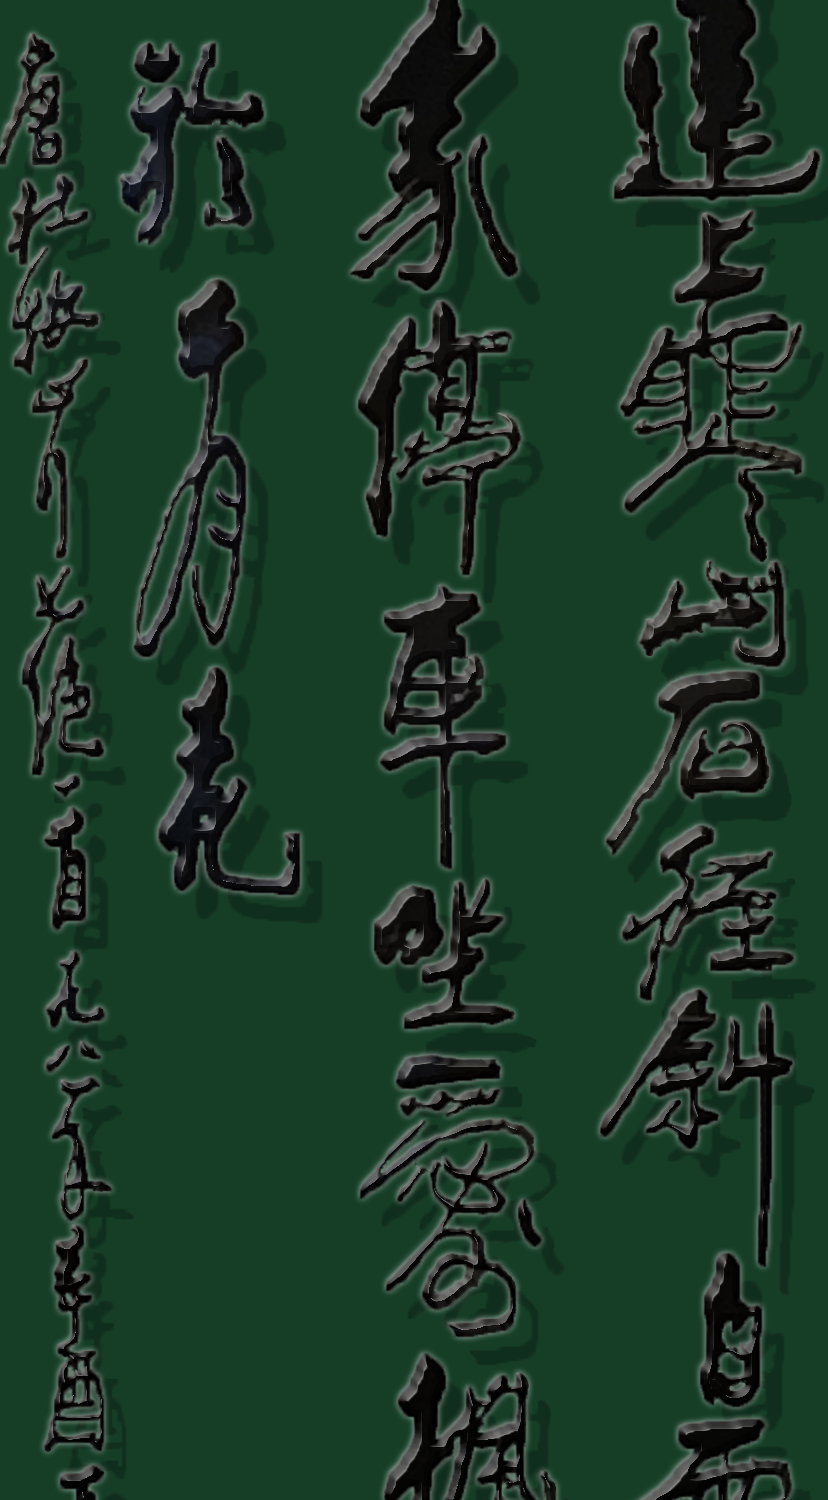 遠上寒山石徑斜白雲
家停車坐愛楓
於二月花
唐杜牧山行七絕一首一九八一年辛酉